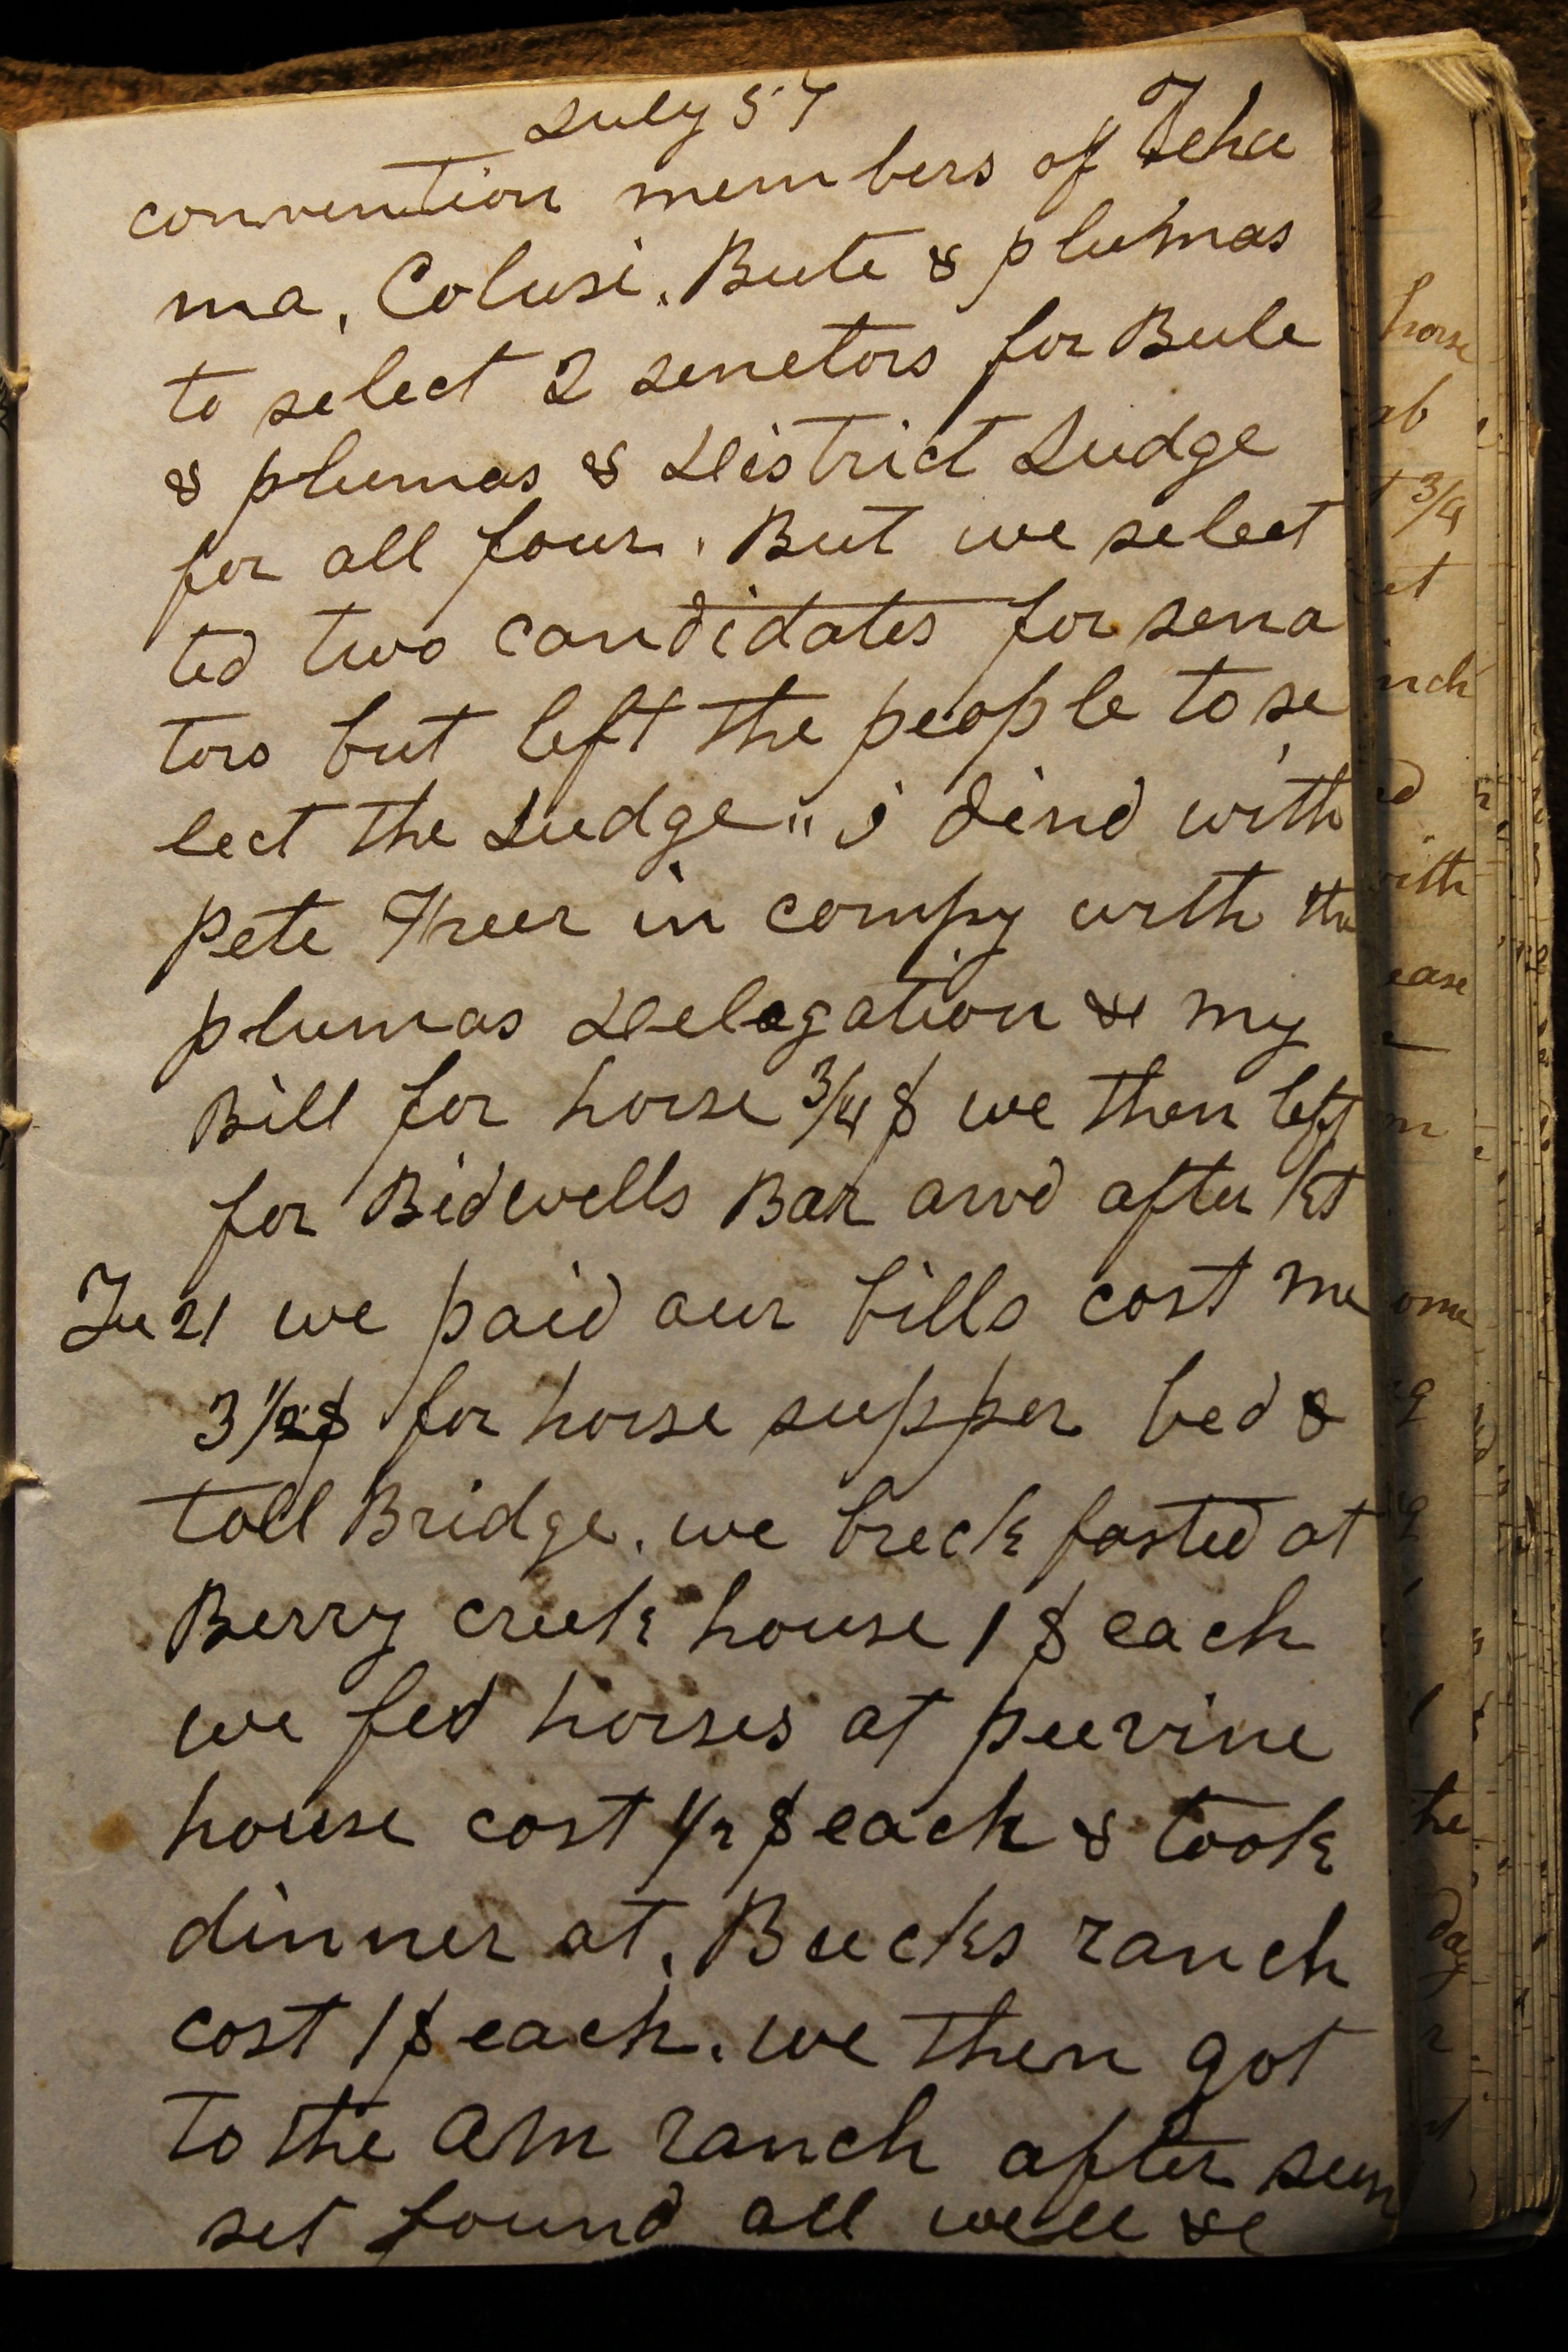 July 57
convention members of Teha
ma, Colusi, Bute & plumas
to select 2 senetors for Bute
& plumas & District Judge
for all four. But we selec
ted two candidates for sena
tors but left the people to se
lect the Judge " i dind with
Pete Freer in compy with the
plumas Delegation & my
Bill for horse 3/4 $ we then left
for Bidwells Bar arvd after
Tu 21 we paid our bills cost me
3 1/2 $ for horse supper bed &
toll Bridge. we breck fasted at
Berry creek house 1 $ each
we fed horses at peevine
house cost 1/2 $ each & took
dinner at, Bucks ranch
cost 1 $ each. we then got
to the am ranch after sun
set found all well &c
horse
3/4
ease
day